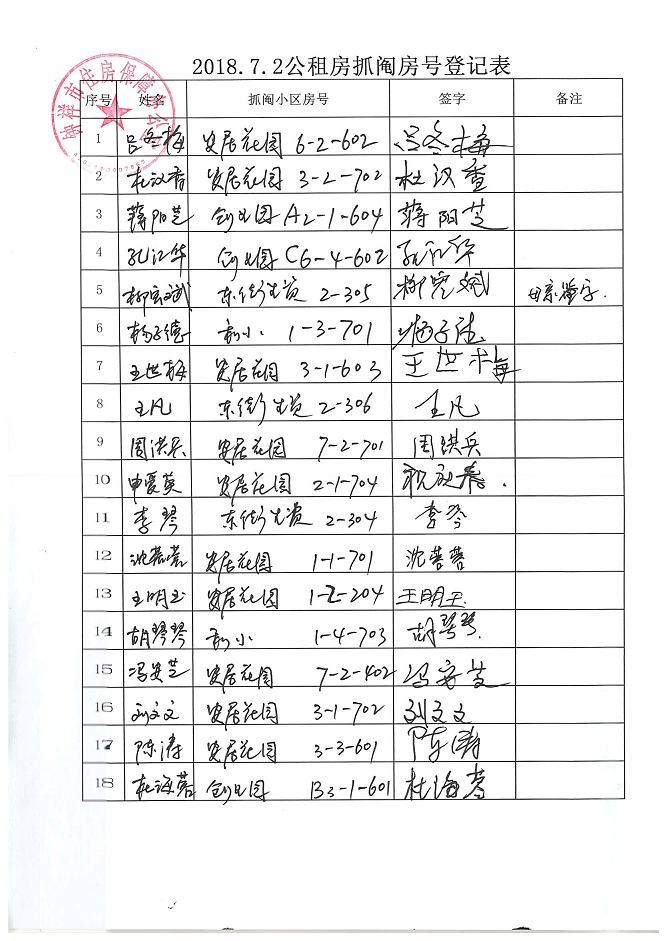 2018.7.2公租房抓阄房号登记表
钟祥市住房保障办公室
序号 姓名 抓阄小区房号 签字 备注
1 吕冬梅 安居花园 6-2-602 吕冬梅
2 杜汉香 安居花园 3-2-702 杜汉香
3 蒋阳芝 创业园 A2-1-604 蒋阳芝
4 孔江华 创业园 C6-4-602 孔江华
5 柳宏斌 东街 2-305 柳宏斌 母亲签字.
6 杨子德 小 1-3-701 杨子德
7 王世梅 安居花园 3-1-603 王世梅
8 王凡 东街 2-306 王凡
9 周洪兵 安居花园 7-2-701 周洪兵
10 申夏英 安居花园 2-1-704
11 李琴 东街 2-304 李琴
12 沈蓉蓉 安居花园 1-1-701 沈蓉蓉
13 王明玉 安居花园 1-2-204 王明玉
14 胡琴琴 小 1-4-703 胡琴琴
15 冯安芝 安居花园 7-2-402 冯安芝
16 刘文文 安居花园 3-1-702 刘文文
17 陈涛 安居花园 3-3-601 陈涛
18 杜海蓉 创业园 B3-1-601 杜海蓉